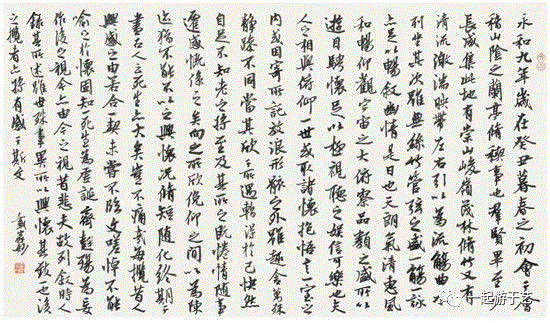 永和九年歲在癸丑暮春之初會于會
稽山陰之蘭亭脩稧事也羣賢畢至少
長咸集此地有崇山峻領茂林脩竹又有
清流激湍暎帶左右引以為流觴曲水
列坐其次雖無絲竹管弦之盛一觴一詠
亦足以暢敘幽情是日也天朗氣清惠風
和暢仰觀宇宙之大俯察品類之盛所以
遊目騁懷足以極視聽之娛信可樂也夫
人之相與俯仰一世或取諸懷抱悟言一室之
內或因寄所託放浪形骸之外雖趣舍萬殊
靜躁不同當其欣於所遇蹔得於己快然
自足不知老之將至及其所之既惓情隨事
遷感慨係之矣向之所欣俛仰之間以為陳
迹猶不能不以之興懷況脩短隨化終期於
盡古人云死生亦大矣豈不痛哉每攬昔人
興感之由若合一契未嘗不臨文嗟悼不能
喻之於懷固知一死生為虛誕齊彭殤為妄
作後之視今亦由今之視昔悲夫故列敘時人
錄其所述雖世殊事異所以興懷其致一也後
之攬者亦將有感於斯文
一起游于艺